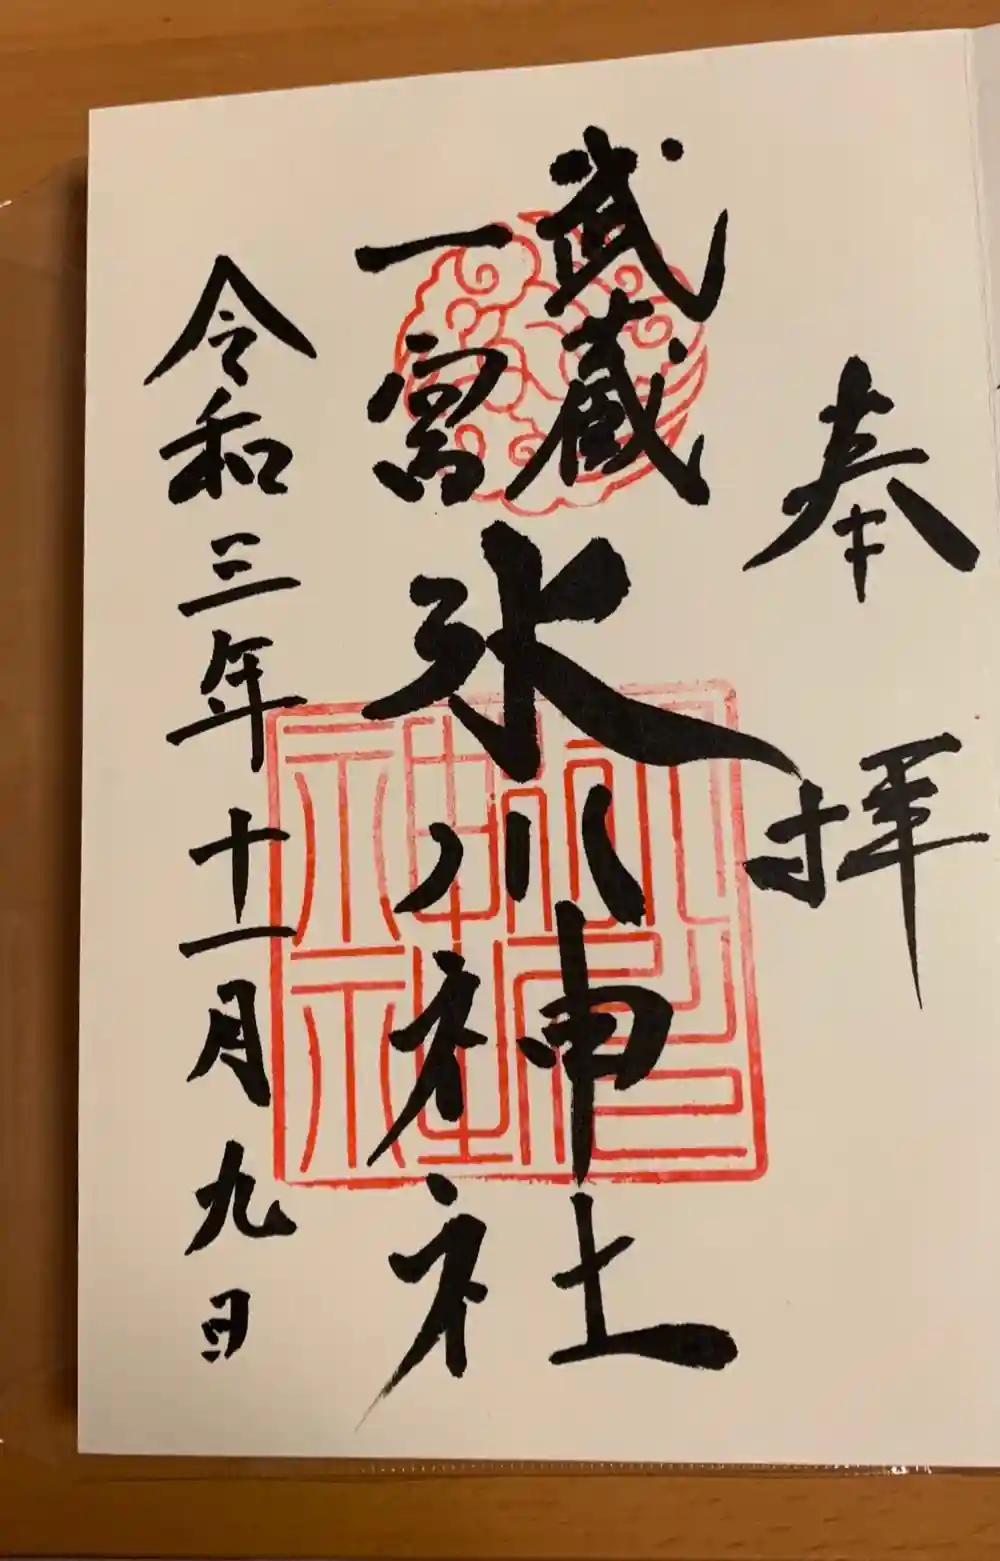 奉拝
武蔵
一宮
氷川神社
令和三年十一月九日
氷川神社